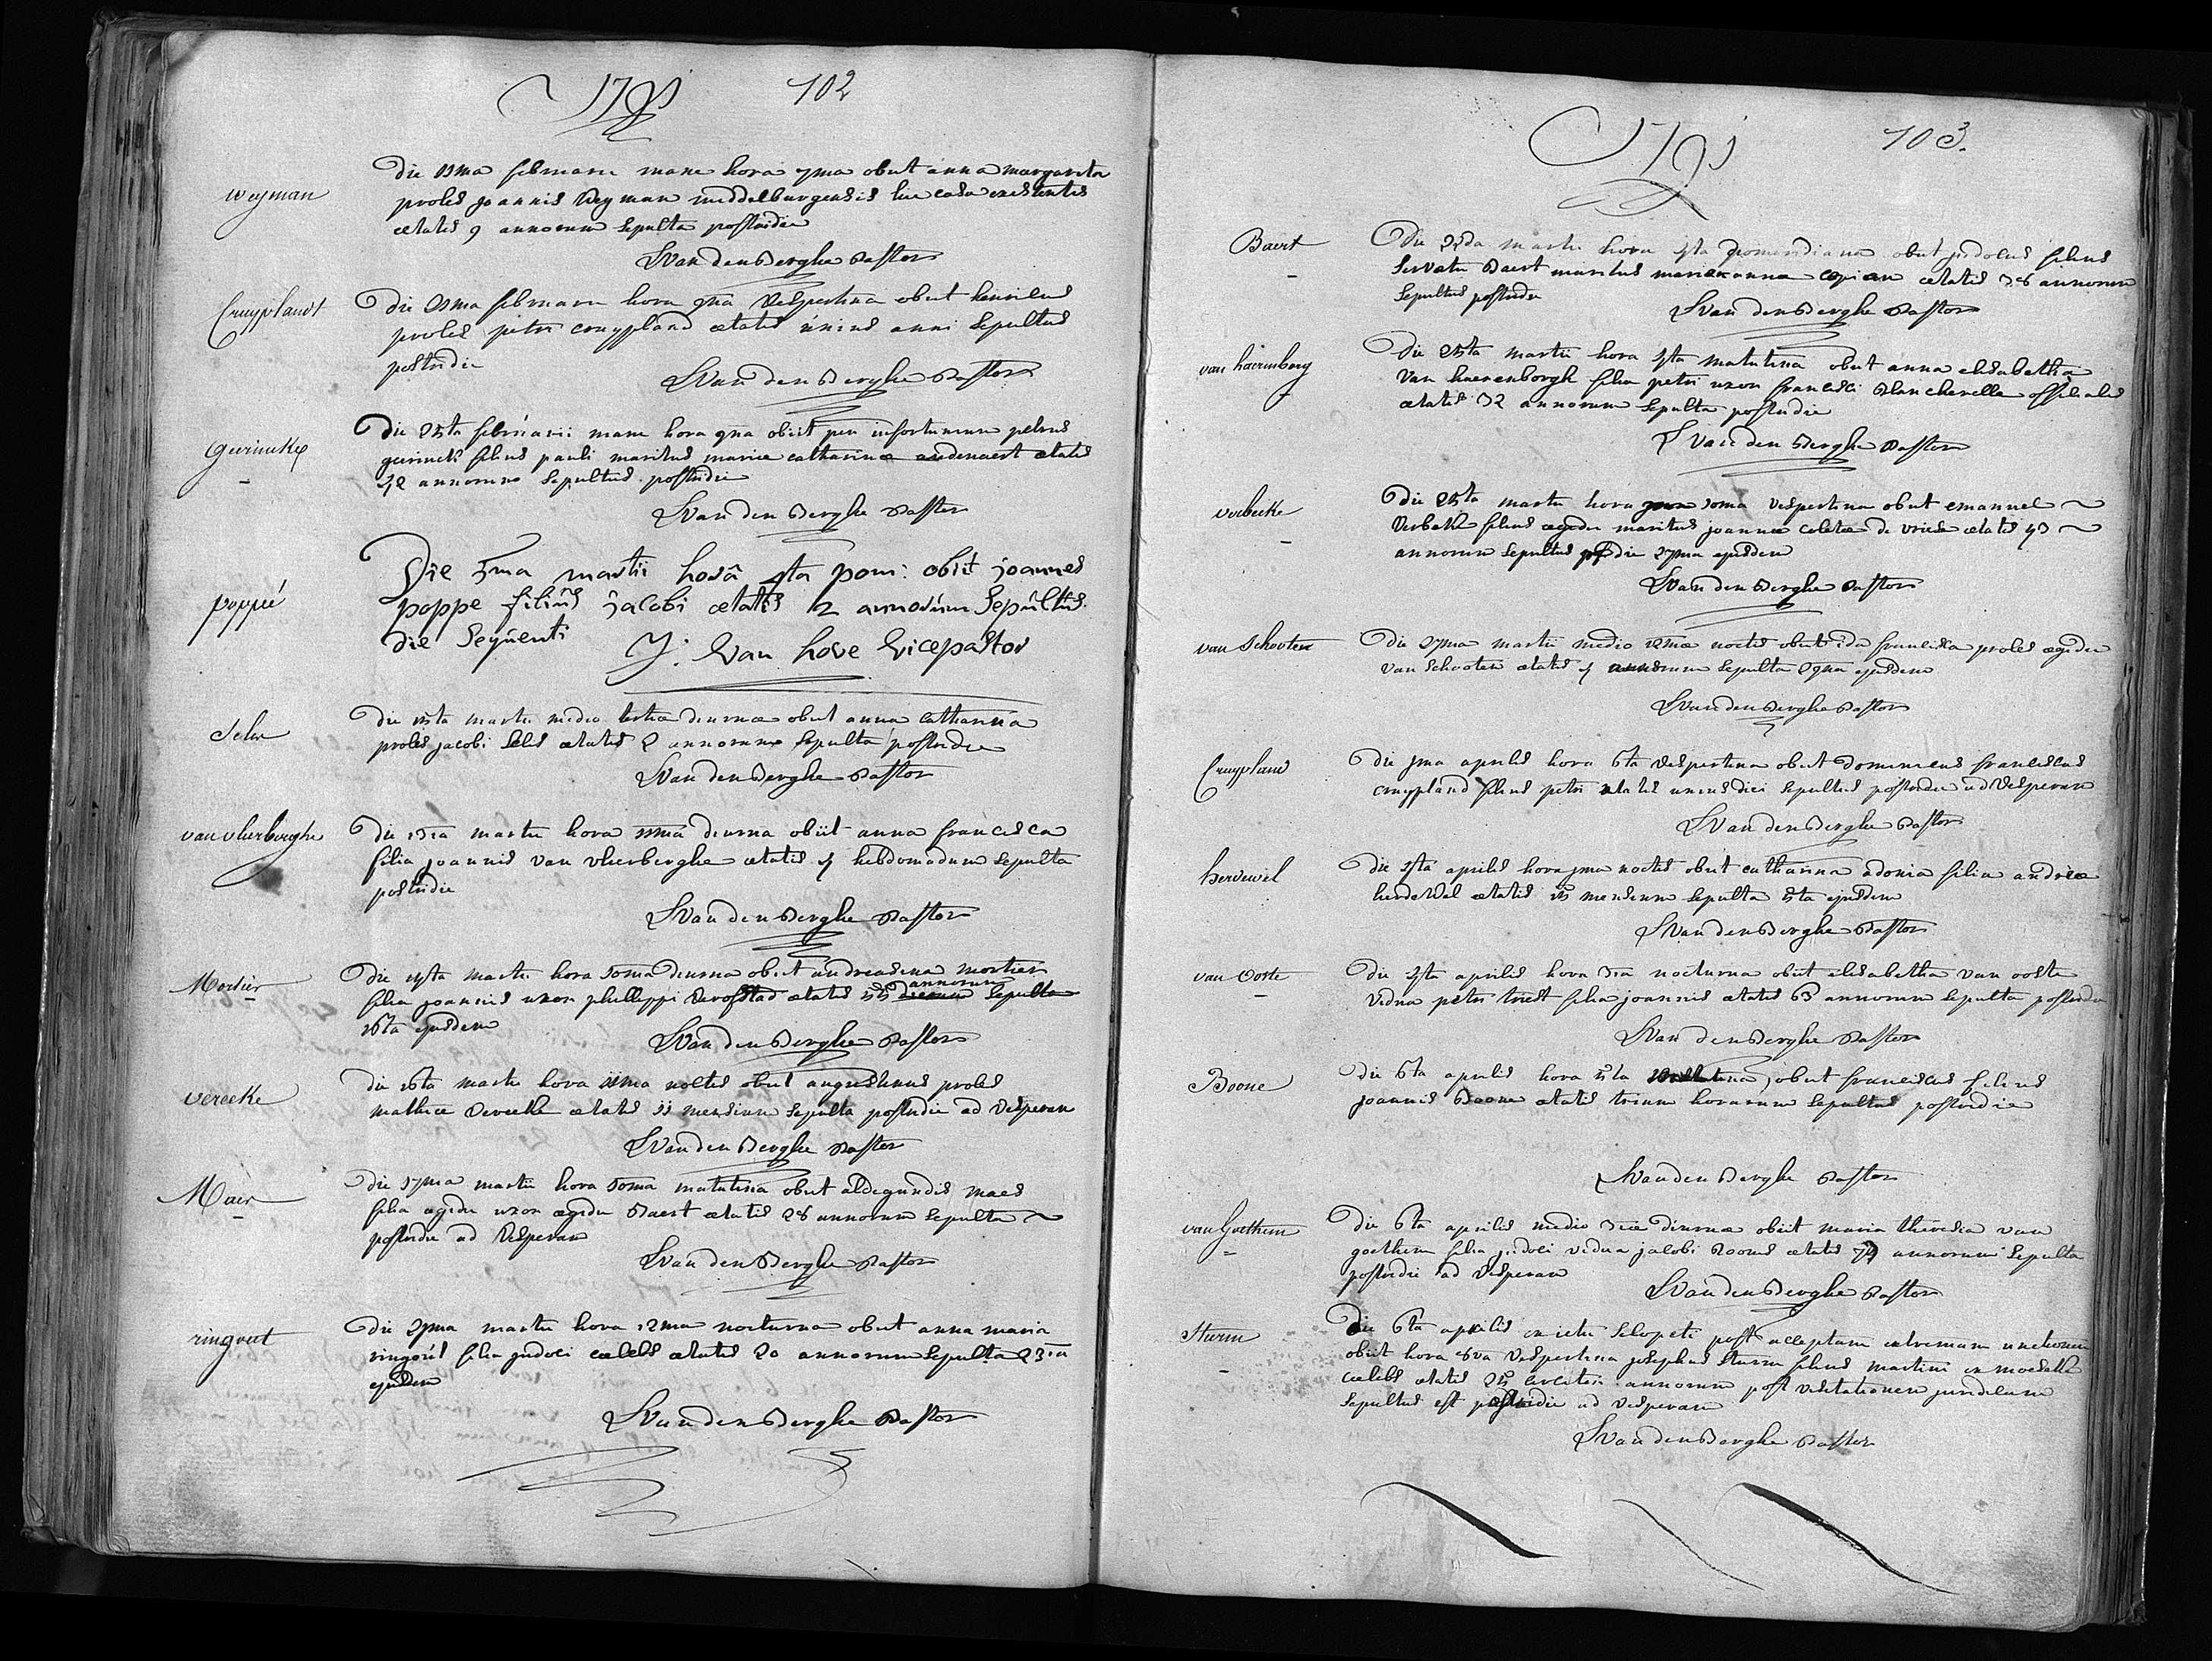 1791 102
weyman
Die 11ma februarii mane hora 7ma obiit anna margarita
proles joannis Weyman middelburgensis hic casa existentis
ætatis 9 annorum sepulta postridie
S Van den Berghe Pastor
Cruyplandt
Die 21ma februarii hora 9na vespertina obiit
proles petri cruypland ætatis unius anni sepultus
postridie
S Van den Berghe Pastor
gevinckx
Die 25ta februarii mane hora 9na obiit per infortunium petrus
gevinck filius pauli maritus mariæ catharinæ audenaert ætatis
42 annorum sepultus postridie
S Van den Berghe Pastor
poppeé
Die 5ma martii horâ 4ta pom: obiit joannes
poppe filius jacobi ætatis 2 annorum sepultus
die sequenti J: Van hove vicepastor
Selis
Die 15ta martii medio tertiæ diurnæ obiit anna catharina
proles jacobi Selis ætatis 2 annorum sepulta postridie
S Van den Berghe Pastor
van vlierberghe
Die 13ia martii hora 11ma diurna obiit anna francisca
filia joannis van vlierberghe ætatis 4 hebdomadum sepulta
postridie
S Van den Berghe Pastor
Mortier
Die 14ta martii hora 10ma diurna obiit andreasina mortier
filia joannis uxor phillippi Verostad ætatis 55 annorum sepulta
16ta ejusdem
S Van den Berghe Pastor
vereeke
Die 16ta martii hora 11ma noctis obiit augustinus proles
mathiæ Vereeke ætatis 11 mensium sepulta postridie ad vesperam
S Van den Berghe Pastor
Maes
Die 17ma martii hora 10ma matutina obiit aldegundis maes
filia ægidii uxor ægidii Baert ætatis 28 annorum sepulta
postridie ad vesperam
S Van den Berghe Pastor
ringout
Die 21ma martii hora 12ma nocturna obiit anna maria
ringout filia judoci cælebs ætatis 20 annorum sepulta 23ia
ejusdem
S Van den Berghe Pastor
1791 103.
Baert
Die 22da martii hora 4ta pomeridiana obiit judocus filius
Servatii Baert maritus mariæ annæ ætatis 38 annorum
sepultus postridie
S Van den Berghe Pastor
van haerenborg
Die 25ta martii hora 4ta matutina obiit anna elisabetha
van haerenborgh filia petri uxor francisci Blanchevelle officialis
ætatis 32 annorum sepulta postridie
S Van den Berghe Pastor
verbeeke
Die 25ta martii hora 10ma vespertina obiit emanuel
Verbeke filius ægidii maritus joannæ coletæ de vriese ætatis 43
annorum sepultus die 27ma ejusdem
S Van den Berghe Pastor
van Schooten
Die 27ma martii medio 12mæ noctis obiit ida francisca proles ægidii
van Schooten ætatis 4 annorum sepulta 29na ejusdem
S Van den Berghe Pastor
Cruypland
Die 1ma aprilis hora 6ta vespertina obiit Dominicus franciscus
cruypland filius petri ætatis unius diei sepultus postridie ad vesperam
S Van den Berghe Pastor
hersevel
Die 4ta aprilis hora 1ma noctis obiit catharina adonia filia andreæ
ætatis 15 mensium sepulta 5ta ejusdem
S Van den Berghe Pastor
van Ooste
Die 4ta aprilis hora 3ia nocturna obiit elisabetha van ooste
vidua petri triest filia joannis ætatis 63 annorum sepulta postridie
S Van den Berghe Pastor
Boone
Die 6ta aprilis hora 5ta obiit franciscus filius
joannis Boone ætatis trium horarum sepultus postridie
S Van den Berghe Pastor
van Goethem
Die 6ta aprilis medio 3iæ diurnæ obiit maria theresia van
goethem filia judoci vidua jacobi Rooms ætatis 74 annorum sepulta
postridie ad vesperam
S Van den Berghe Pastor
Sturm
Die 6ta aprilis ex ictu sclopeti post acceptam extremam unctionem
obiit hora 8va vespertina josephus Sturm filius martini ex
cælebs ætatis 25 circiter annorum post visitationem juridicam
sepultus est postridie ad vesperam
S Van den Berghe Pastor